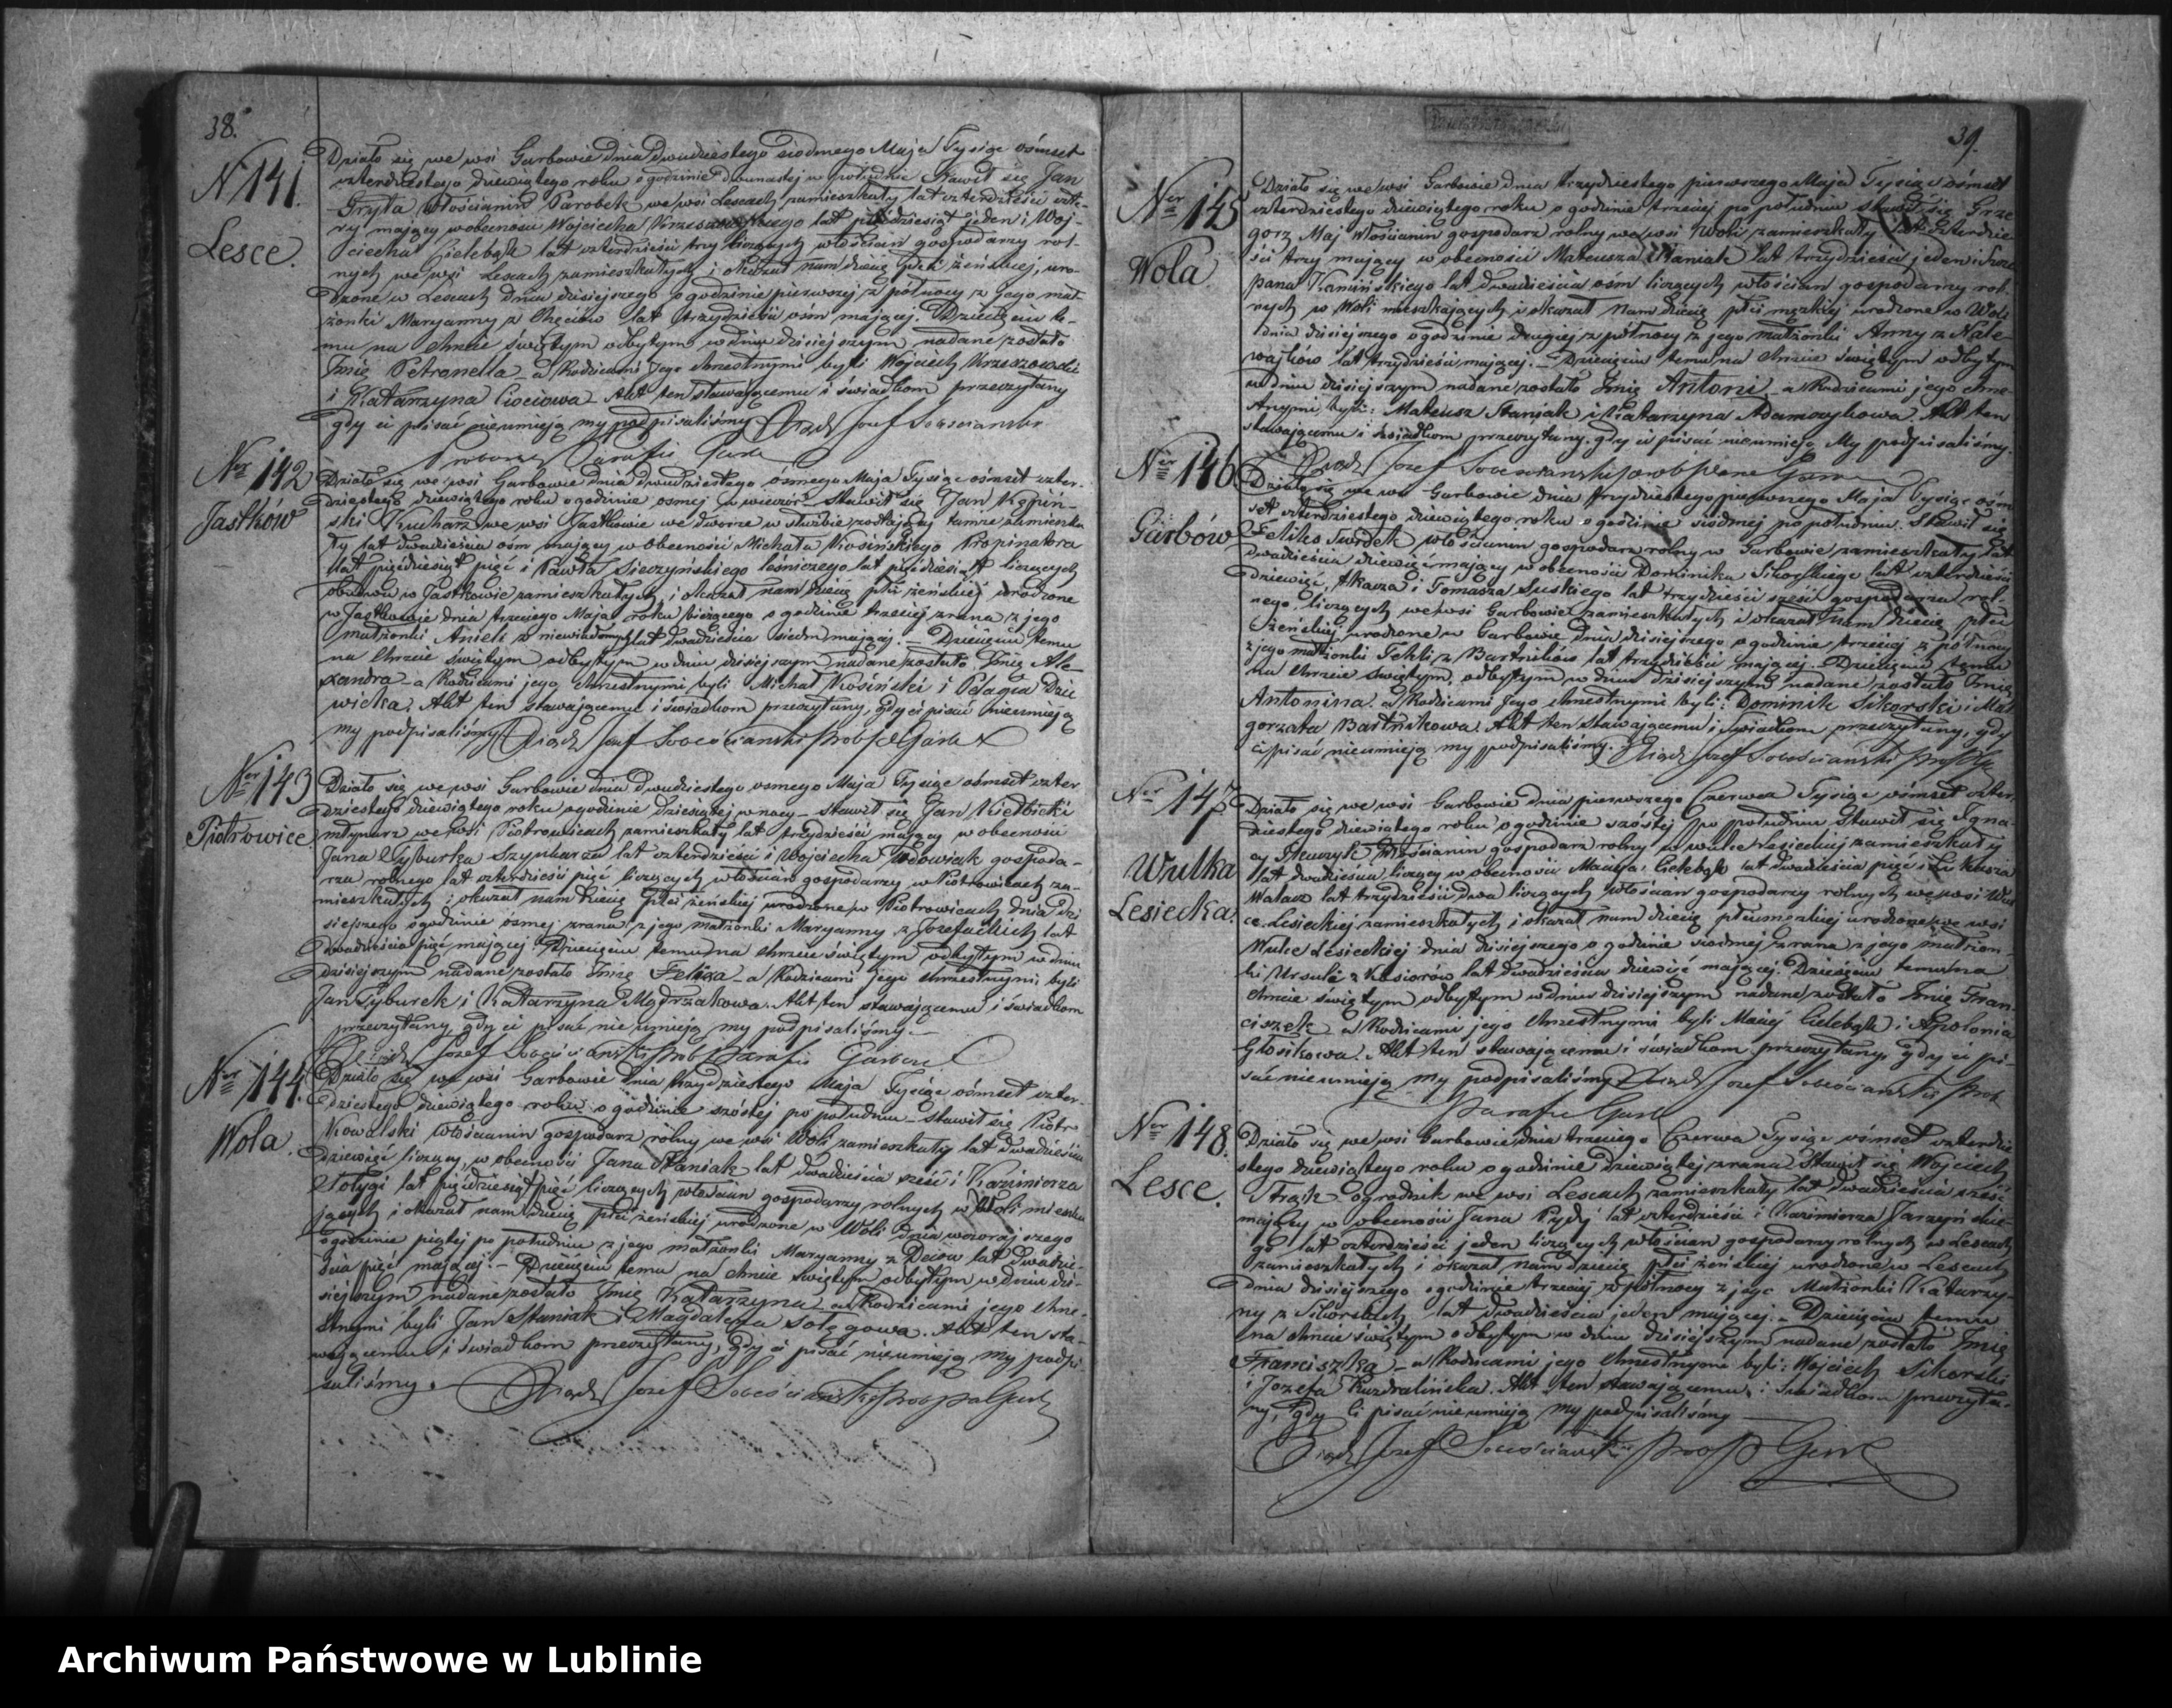 38.
N 141.
Lesce.
Działo się we wsi Garbowie dnia dwudziestego siodmego Maja Tysiąc ośmset
czterdziestego dziewiątego roku o godzinie dwunastej w południe Stawił się Jan
Gryta Włościanin Parobek we wsi Lescach zamieszkały lat czterdzieści czte-
ry mający w obecności Wojciecha lat pięćdziesiąt jeden i Woj-
ciecha Cielebąk lat czterdzieści trzy liczących włościan gospodarzy rol-
nych we wsi Lescach zamieszkałych i okazał nam dziecię płci żeńskiej, uro-
dzone w Lescach dnia dzisiejszego o godzinie pierwszej z północy z jego mał-
żonki Maryanny z lat trzydzieści ośm mającej. Dziecięciu te-
mu na chrzcie świętym odbytym w dniu dzisiejszym nadane zostało
Imię Petronella a Rodzicami Jego chrzestnymi byli Wojciech
i Katarzyna Ciociowa Akt ten stawającemu i świadkom przeczytany
gdy ci pisać nieumieją my podpisaliśmy Xiądz Józef
Proboszcz Parafii
Ner 142
Jastków
Działo się we wsi Garbowie dnia dwudziestego ósmego Maja Tysiąc ośmset czter-
dziestego dziewiątego roku o godzinie osmej w wieczór Stawił się Jan Kępiń-
ski Kucharz we wsi Jastkowie we dworze w służbie zostający tamże zamieszka-
ły lat dwadzieścia ośm mający w obecności Michała Kosińskiego Propinatora
lat pięćdziesiąt pięć i Pawła Sieczyńskiego leśniczego lat pięćdziesiąt liczących
obudwu w Jastkowie zamieszkałych, i okazał nam dziecię płci żeńskiej urodzone
w Jastkowie dnia trzeciego Maja roku bieżącego o godzinie trzeciej zrana z jego
małżonki Anieli z niewiadomych lat dwadzieścia siedm mającej. Dziecięciu temu
na Chrzcie świętym odbytym w dniu dzisiejszym nadane zostało Imię Ale-
xandra a Rodzicami jego chrzestnymi byli Michał Kosiński i Pelagia Dzie
wicka. Akt ten stawającemu i świadkom przeczytany, gdy ci pisać nieumieją
my podpisaliśmy Xiądz Józef
Ner 143
Piotrowice
Działo się we wsi Garbowie dnia dwudziestego osmego Maja Tysiąc ośmset czter
dziestego dziewiątego roku o godzinie dziesiątej w nocy Stawił się Jan Kiełbicki
młynarz we wsi Piotrowicach zamieszkały lat trzydzieści mający w obecności
Jana Tyburka Szynkarza lat czterdzieści i Wojciecha Wdowiak gospoda-
rza rolnego lat czterdzieści pięć liczących włościan gospodarzy w Piotrowicach za-
mieszkałych i okazał nam dziecię płci żeńskiej urodzone w Piotrowicach dnia dzi
siejszego o godzinie ósmej zrana z jego małżonki Maryanny z Józefackich lat
dwadzieścia pięć mającej. Dziecięciu temu na chrzcie świętym odbytym w dniu
dzisiejszym nadane zostało Imię Felixa a Rodzicami jego chrzestnymi byli
Jan Tyburek i Katarzyna Mędrzakowa. Akt ten stawającemu i świadkom
przeczytany, gdy ci pisać nie umieją my podpisaliśmy.
Xiądz Józef Parafii
Ner 144.
Wola.
Działo się we wsi Garbowie dnia trzydziestego Maja Tysiąc ośmset czter-
dziestego dziewiątego roku o godzinie szóstej po południu stawił się Piotr
Kowalski Włościanin gospodarz rolny we wsi Woli zamieszkały lat dwadzieścia
dziewięć liczący, w obecności Jana Staniak lat dwadzieścia sześć i Kazimierza
lat pięćdziesiąt pięć liczących włościan gospodarzy rolnych w Woli mieszka
jących i okazał nam dziecię płci żeńskiej urodzone w Woli dnia wczorajszego
o godzinie piątej po południu z jego małżonki Maryanny z lat dwadzie-
ścia pięć mającej. Dziecięciu temu na chrzcie świętym odbytym w dniu dzi-
siejszym nadane zostało Imię Katarzyna a Rodzicami jego chrze-
stnymi byli Jan Staniak i Magdalena. Akt ten sta-
wającemu i świadkom przeczytany, gdy ci pisać nieumieją my podpi
saliśmy. Xiądz Józef
39.
Ner 145
Wola
Działo się we wsi Garbowie dnia trzydziestego pierwszego Maja Tysiąc ośmset
czterdziestego dziewiątego roku o godzinie trzeciej po południu stawił się Grze
gorz Maj Włościanin gospodarz rolny we wsi Woli zamieszkały lat czterdzie-
ści trzy mający w obecności Mateusza Staniak lat trzydzieści jeden i Szcze
pana Kamińskiego lat dwadzieścia ośm liczących włościan gospodarzy rol
nych w Woli mieszkających i okazał nam dziecię płci męzkiej urodzone w Woli
dnia dzisiejszego o godzinie drugiej z północy z jego małżonki Anny z Nale-
wajków lat trzydzieści mającej. Dziecięciu temu na chrzcie świętym odbytym
w dniu dzisiejszym nadane zostało Imię Antoni a Rodzicami jego chrze-
stnymi byli: Mateusz Staniak i Katarzyna Adamczykowa. Akt ten
stawającemu i świadkom przeczytany. gdy ci pisać nieumieją My podpisaliśmy.
Xiądz Józef
Ner 146
Garbów
Działo się we wsi Garbowie dnia trzydziestego pierwszego Maja Tysiąc ośm
set czterdziestego dziewiątego roku o godzinie siódmej po południu. Stawił się
Felix włościanin gospodarz rolny w Garbowie zamieszkały lat
dwadzieścia dziewięć mający w obecności Dominika Sikorskiego lat czterdzieści
dziewięć, tkacza i Tomasza Suskiego lat trzydzieści sześć gospodarza rol-
nego, liczących we wsi Garbowie zamieszkałych i okazał nam dziecię płci
żeńskiej urodzone w Garbowie dnia dzisiejszego o godzinie trzeciej z północy
z jego małżonki Tekli z Bartników lat trzydzieści mającej. Dziecięciu temu
na Chrzcie świętym, odbytym w dniu dzisiejszym nadane zostało Imię
Antonina. a Rodzicami Jego chrzestnymi byli: Dominik Sikorski i Mał
gorzata Bartnikowa. Akt ten stawającemu i świadkom przeczytany, gdy
ci pisać nieumieją my podpisaliśmy. Xiądz Józef
Ner 147
Wulka
Lesiecka.
Działo się we wsi Garbowie dnia pierwszego Czerwca Tysiąc ośmset czter
dziestego dziewiątego roku o godzinie szóstej po południu Stawił się Igna-
cy Tkaczyk Włościanin gospodarz rolny w wulce Lesieckiej zamieszkały
lat dwadzieścia liczący w obecności Macieja Cielebąk lat dwadzieścia pięć i Łukasza
Walacz lat trzydzieści dwa liczących włościan gospodarzy rolnych we wsi Wul
ce Lesieckiej zamieszkałych i okazał nam dziecię płci męzkiej urodzone we wsi
Wulce Lesieckiej dnia dzisiejszego o godzinie siódmej zrana z jego małżon-
ki Urszuli z Kasiorów lat dwadzieścia dziewięć mającej. Dziecięciu temu na
chrzcie świętym odbytym w dniu dzisiejszym nadane zostało Imię Fran-
ciszek a Rodzicami jego chrzestnymi byli Maciej Cielebąk i Apolonia
Głosikowa. Akt ten stawającemu i świadkom przeczytany, gdy ci pi-
sać nieumieją my podpisaliśmy Xiądz Józef
Parafii
Ner 148.
Lesce.
Działo się we wsi Garbowie dnia trzeciego Czerwca Tysiąc ośmset czterdzie
stego dziewiątego roku o godzinie dziewiątej zrana Stawił się Wojciech
ogrodnik we wsi Lescach zamieszkały lat dwadzieścia sześć
mający w obecności Jana lat czterdzieści i Kazimierza Jarzyńskie-
go lat czterdzieści jeden liczących włościan gospodarzy rolnych w Lescach
zamieszkałych i okazał nam dziecię płci żeńskiej urodzone w Lescach
dnia dzisiejszego o godzinie trzeciej z północy z jego Małżonki Katarzy-
ny z Sikorskich lat dwadzieścia jeden mającej. Dziecięciu temu
na chrzcie świętym odbytym w dniu dzisiejszym nadane zostało Imię
Franciszka a Rodzicami jego chrzestnymi byli: Wojciech Sikorski
i Józefa. Akt ten stawającemu i świadkom przeczyta-
ny, gdy Ci pisać nieumieją my podpisaliśmy
Xiądz Józef
Archiwum Państwowe w Lublinie